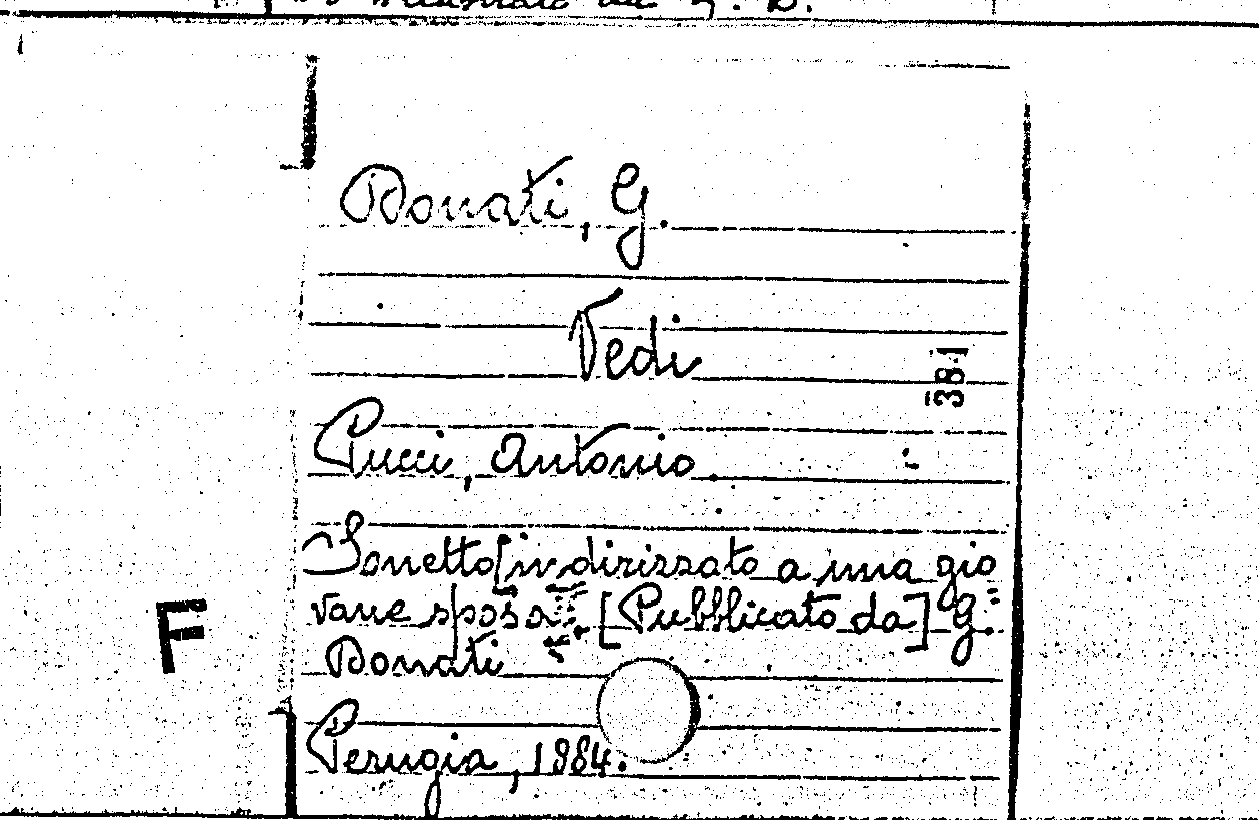 Donati, G.
Vedi
381
Pucci, Antonio.
Sonetto [indirizzato a una gio
vane sposa]. [Pubblicato da] G.
Donati
F
Perugia, 1884.